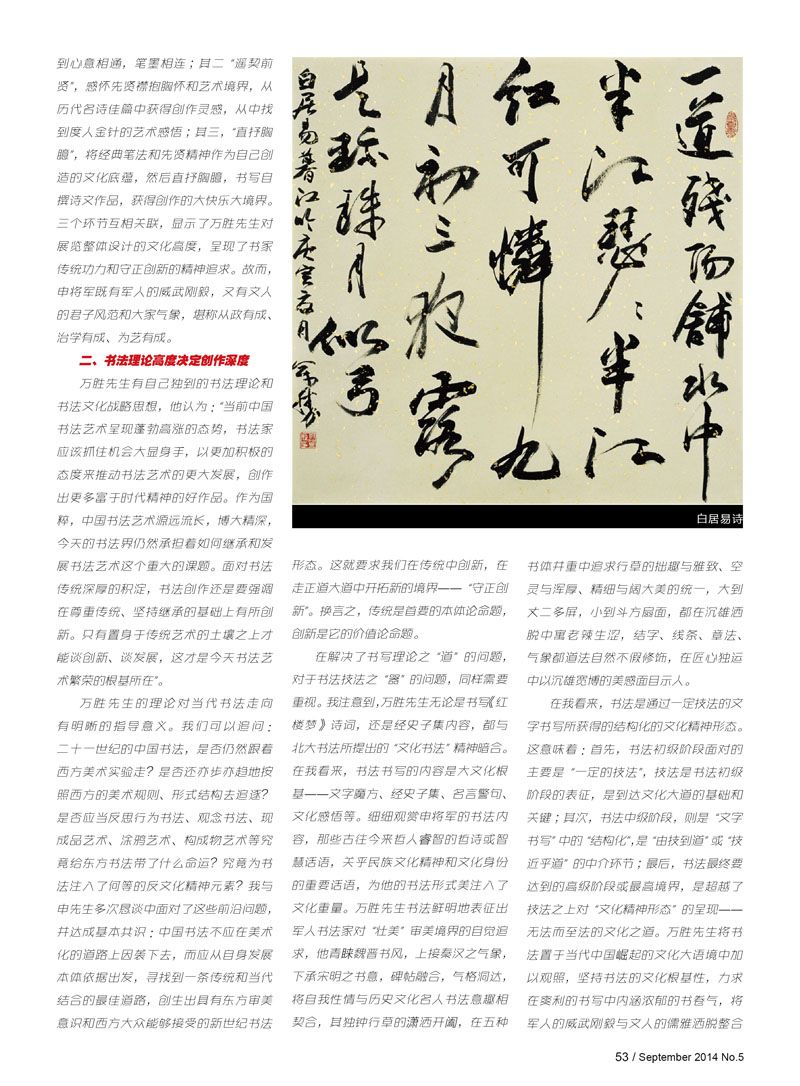 到心意相通，笔墨相连；其二“遥契前
贤”，感怀先贤襟抱胸怀和艺术境界，从
历代名诗佳篇中获得创作灵感，从中找
到度人金针的艺术感悟；其三，“直抒胸
臆”，将经典笔法和先贤精神作为自己创
造的文化底蕴，然后直抒胸臆，书写自
撰诗文作品，获得创作的大快乐大境界。
三个环节互相关联，显示了万胜先生对
展览整体设计的文化高度，呈现了书家
传统功力和守正创新的精神追求。故而，
申将军既有军人的威武刚毅，又有文人
的君子风范和大家气象，堪称从政有成、
治学有成、为艺有成。
二、书法理论高度决定创作深度
万胜先生有自己独到的书法理论和
书法文化战略思想，他认为：“当前中国
书法艺术呈现蓬勃高涨的态势，书法家
应该抓住机会大显身手，以更加积极的
态度来推动书法艺术的更大发展，创作
出更多富于时代精神的好作品。作为国
粹，中国书法艺术源远流长，博大精深，
今天的书法界仍然承担着如何继承和发
展书法艺术这个重大的课题。面对书法
传统深厚的积淀，书法创作还是要强调
在尊重传统、坚持继承的基础上有所创
新。只有置身于传统艺术的土壤之上才
能谈创新、谈发展，这才是今天书法艺
术繁荣的根基所在”。
万胜先生的理论对当代书法走向
有明晰的指导意义。我们可以追问：
二十一世纪的中国书法，是否仍然跟着
西方美术实验走？是否还亦步亦趋地按
照西方的美术规则、形式结构去追逐？
是否应当反思行为书法、观念书法、现
成品艺术、涂鸦艺术、构成物艺术等究
竟给东方书法带了什么命运？究竟为书
法注入了何等的反文化精神元素？我与
申先生多次恳谈中面对了这些前沿问题，
并达成基本共识：中国书法不应在美术
化的道路上因袭下去，而应从自身发展
本体依据出发，寻找到一条传统和当代
结合的最佳道路，创生出具有东方审美
意识和西方大众能够接受的新世纪书法
一道残阳铺水中
半江瑟々半江
红可怜九
月初三夜露
是珍珠月似弓
白居易暮江吟庚寅夏月万胜
白居易诗
形态。这就要求我们在传统中创新，在
走正道大道中开拓新的境界——“守正创
新”。换言之，传统是首要的本体论命题，
创新是它的价值论命题。
在解决了书写理论之“道”的问题，
对于书法技法之“器”的问题，同样需要
重视。我注意到，万胜先生无论是书写《红
楼梦》诗词，还是经史子集内容，都与
北大书法所提出的“文化书法”精神暗合。
在我看来，书法书写的内容是大文化根
基——文字魔方、经史子集、名言警句、
文化感悟等。细细观赏申将军的书法内
容，那些古往今来哲人睿智的哲诗或智
慧话语，关乎民族文化精神和文化身份
的重要话语，为他的书法形式美注入了
文化重量。万胜先生书法鲜明地表征出
军人书法家对“壮美”审美境界的自觉追
求，他青睐魏晋书风，上接秦汉之气象，
下承宋明之书意，碑帖融合，气格洞达，
将自我性情与历史文化名人书法意趣相
契合，其独钟行草的潇洒开阖，在五种
书体并重中追求行草的拙趣与雅致、空
灵与浑厚、精细与阔大美的统一，大到
丈二多屏，小到斗方扇面，都在沉雄洒
脱中寓老辣生涩，结字、线条、章法、
气象都道法自然不假修饰，在匠心独运
中以沉雄宽博的美感面目示人。
在我看来，书法是通过一定技法的文
字书写所获得的结构化的文化精神形态。
这意味着：首先，书法初级阶段面对的
主要是“一定的技法”，技法是书法初级
阶段的表征，是到达文化大道的基础和
关键；其次，书法中级阶段，则是“文字
书写”中的“结构化”，是“由技到道”或“技
近乎道”的中介环节；最后，书法最终要
达到的高级阶段或最高境界，是超越了
技法之上对“文化精神形态”的呈现——
无法而至法的文化之道。万胜先生将书
法置于当代中国崛起的文化大语境中加
以观照，坚持书法的文化根基性，力求
在爽利的书写中内涵浓郁的书卷气，将
军人的威武刚毅与文人的儒雅洒脱整合
53 / September 2014 No.5